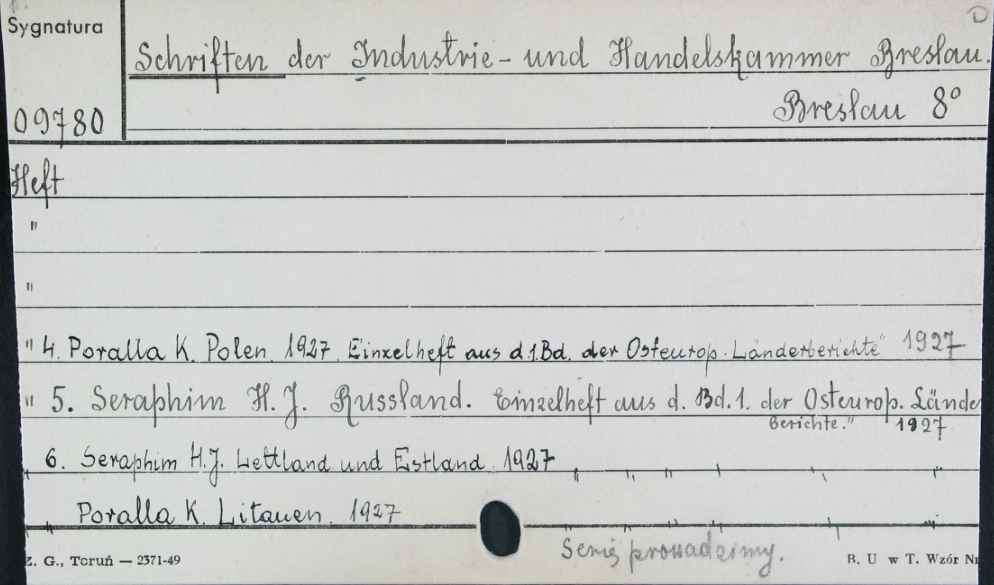 D
Sygnatura
Schriften der Industrie- und Handelskammer Breslau.
09780
Breslau 8°
Heft
"
"
" 4. Poralla K. Polen. 1927. Einzelheft aus d.1.Bd. der Osteurop. Länderberichte" 1927
" 5. Seraphim H. J. Russland. Einzelheft aus d. Bd.1. der Osteurop. Lände
Berichte." 1927
6. Seraphim H.J. Lettland und Estland. 1927
" " " " " "
Poralla K. Litauen. 1927
Serię prowadzimy.
Z. G., Toruń — 2371-49
B. U w T. Wzór Nr